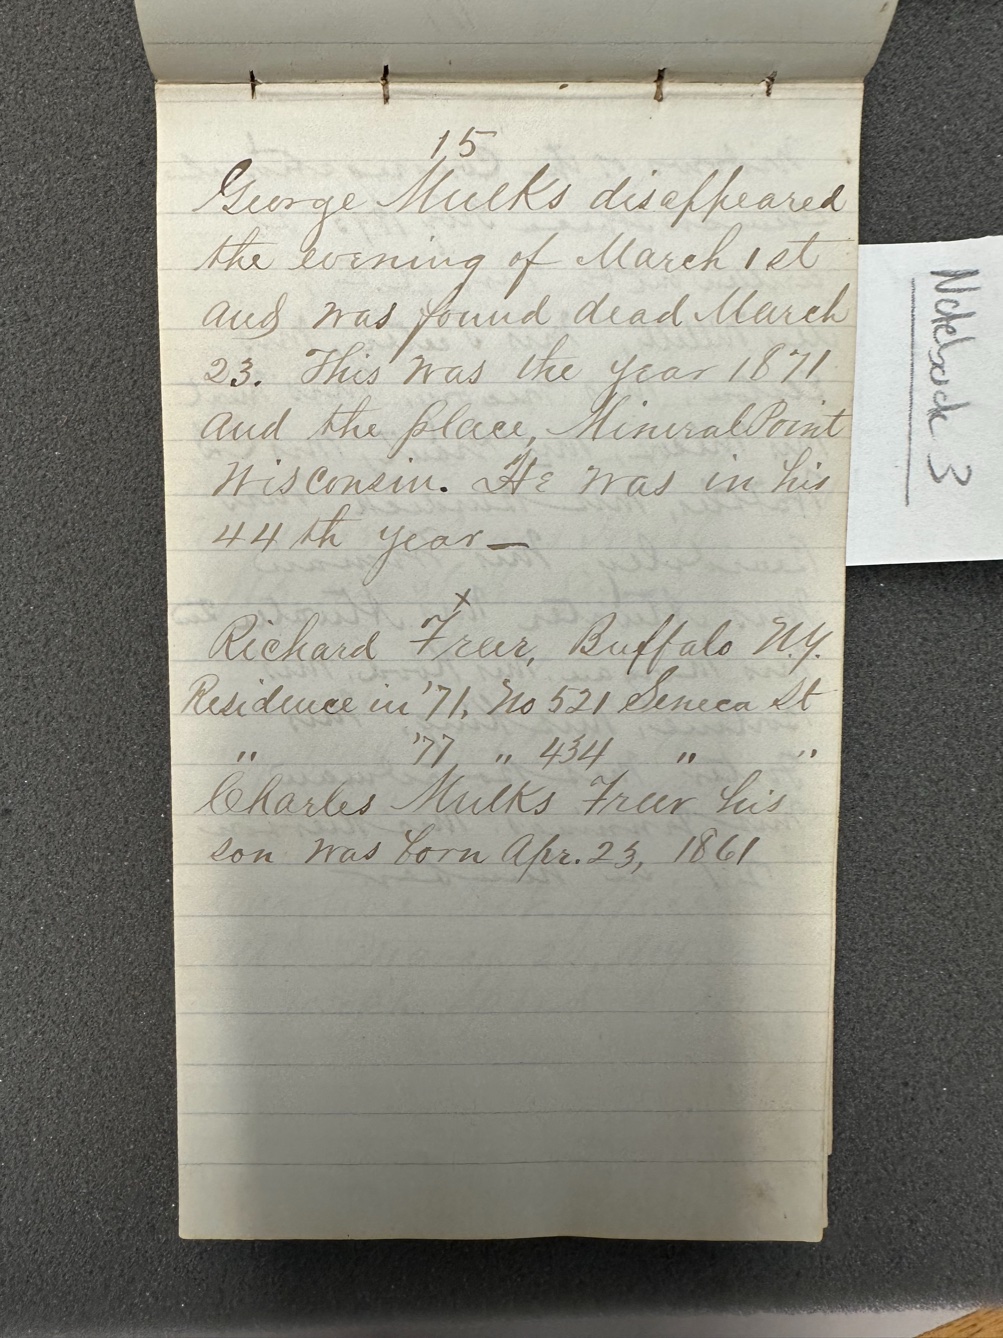 15
George Mulks disappeared
the evening of March 1st
and was found dead March
23. This was the year 1871
and the place, Mineral Point
Wisconsin. He was in his
44th year—
x
Richard Freer, Buffalo N.Y.
Residence in '71. No 521 Seneca St
" '77 " 434 " "
Charles Mulks Freer his
son was born Apr. 23, 1861
Notebook 3